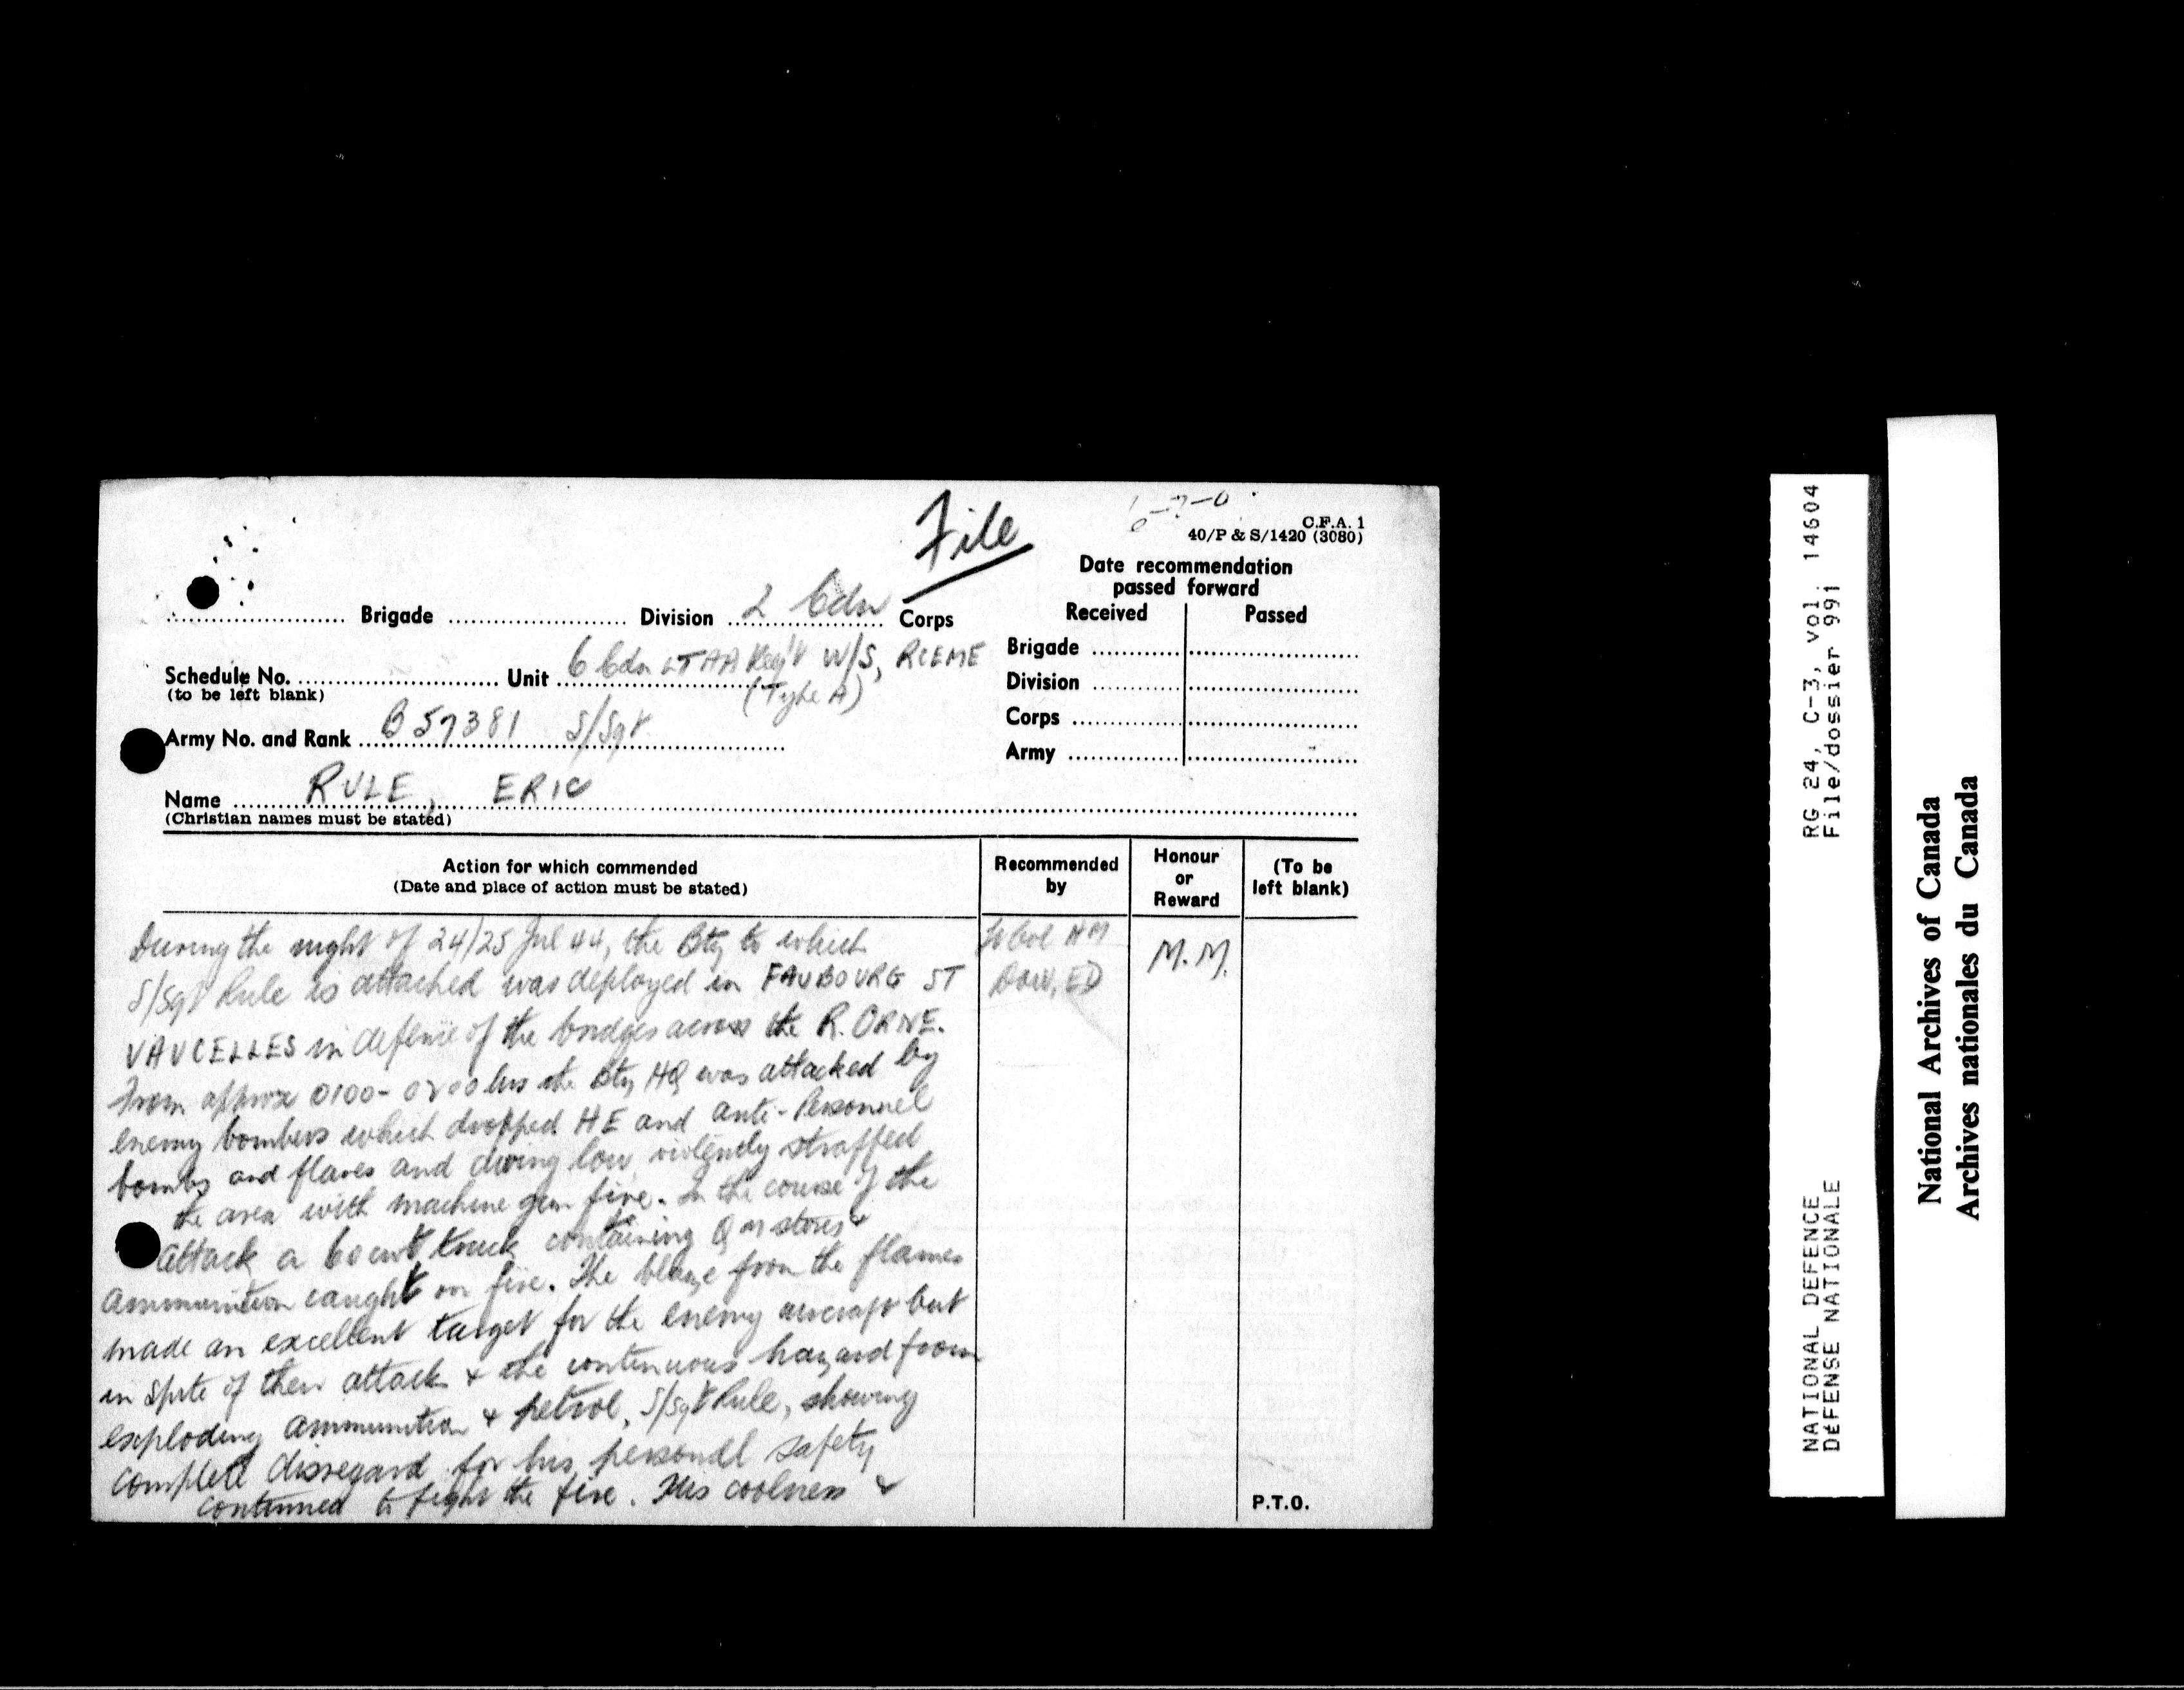 File
C.F.A. 1
40/P & S/1420 (3080)
Date recommendation
passed forward
Received Passed
Brigade Division 2 Cdn Corps
Schedule No. Unit 6 Cdn LTAA Reg't W/S, RCEME
(to be left blank) (Type A)
Army No. and Rank B57381 S/Sgt
Name RULE, ERIC
(Christian names must be stated)
Brigade
Division
Corps
Army
Action for which commended
(Date and place of action must be stated)
Recommended
by
Honour
or
Reward
(To be
left blank)
During the night of 24/25 Jul 44, the Bty to which
S/Sgt Rule is attached was deployed in FAUBOURG ST
VAUCELLES in defence of the bridges across the R. ORNE.
From approx 0100- hrs the Bty HQ was attacked by
enemy bombers which dropped HE and anti-Personnel
bombs and flares and diving low violently straffed
the area with machine gun fire. In the course of the
attack a 60 cwt truck containing Q M stores &
ammunition caught on fire. The blaze from the flames
made an excellent target for the enemy aircraft but
in spite of their attack & the continuous hazard from
exploding ammunition & petrol, S/Sgt Rule, showing
complete disregard for his personal safety
continued to fight the fire. His coolness &
Lt Col HM
Dow, ED
M.M.
P.T.O.
RG 24, C-3, vol. 14604
File/dossier 991
NATIONAL DEFENCE
DéFENSE NATIONALE
National Archives of Canada
Archives nationales du Canada